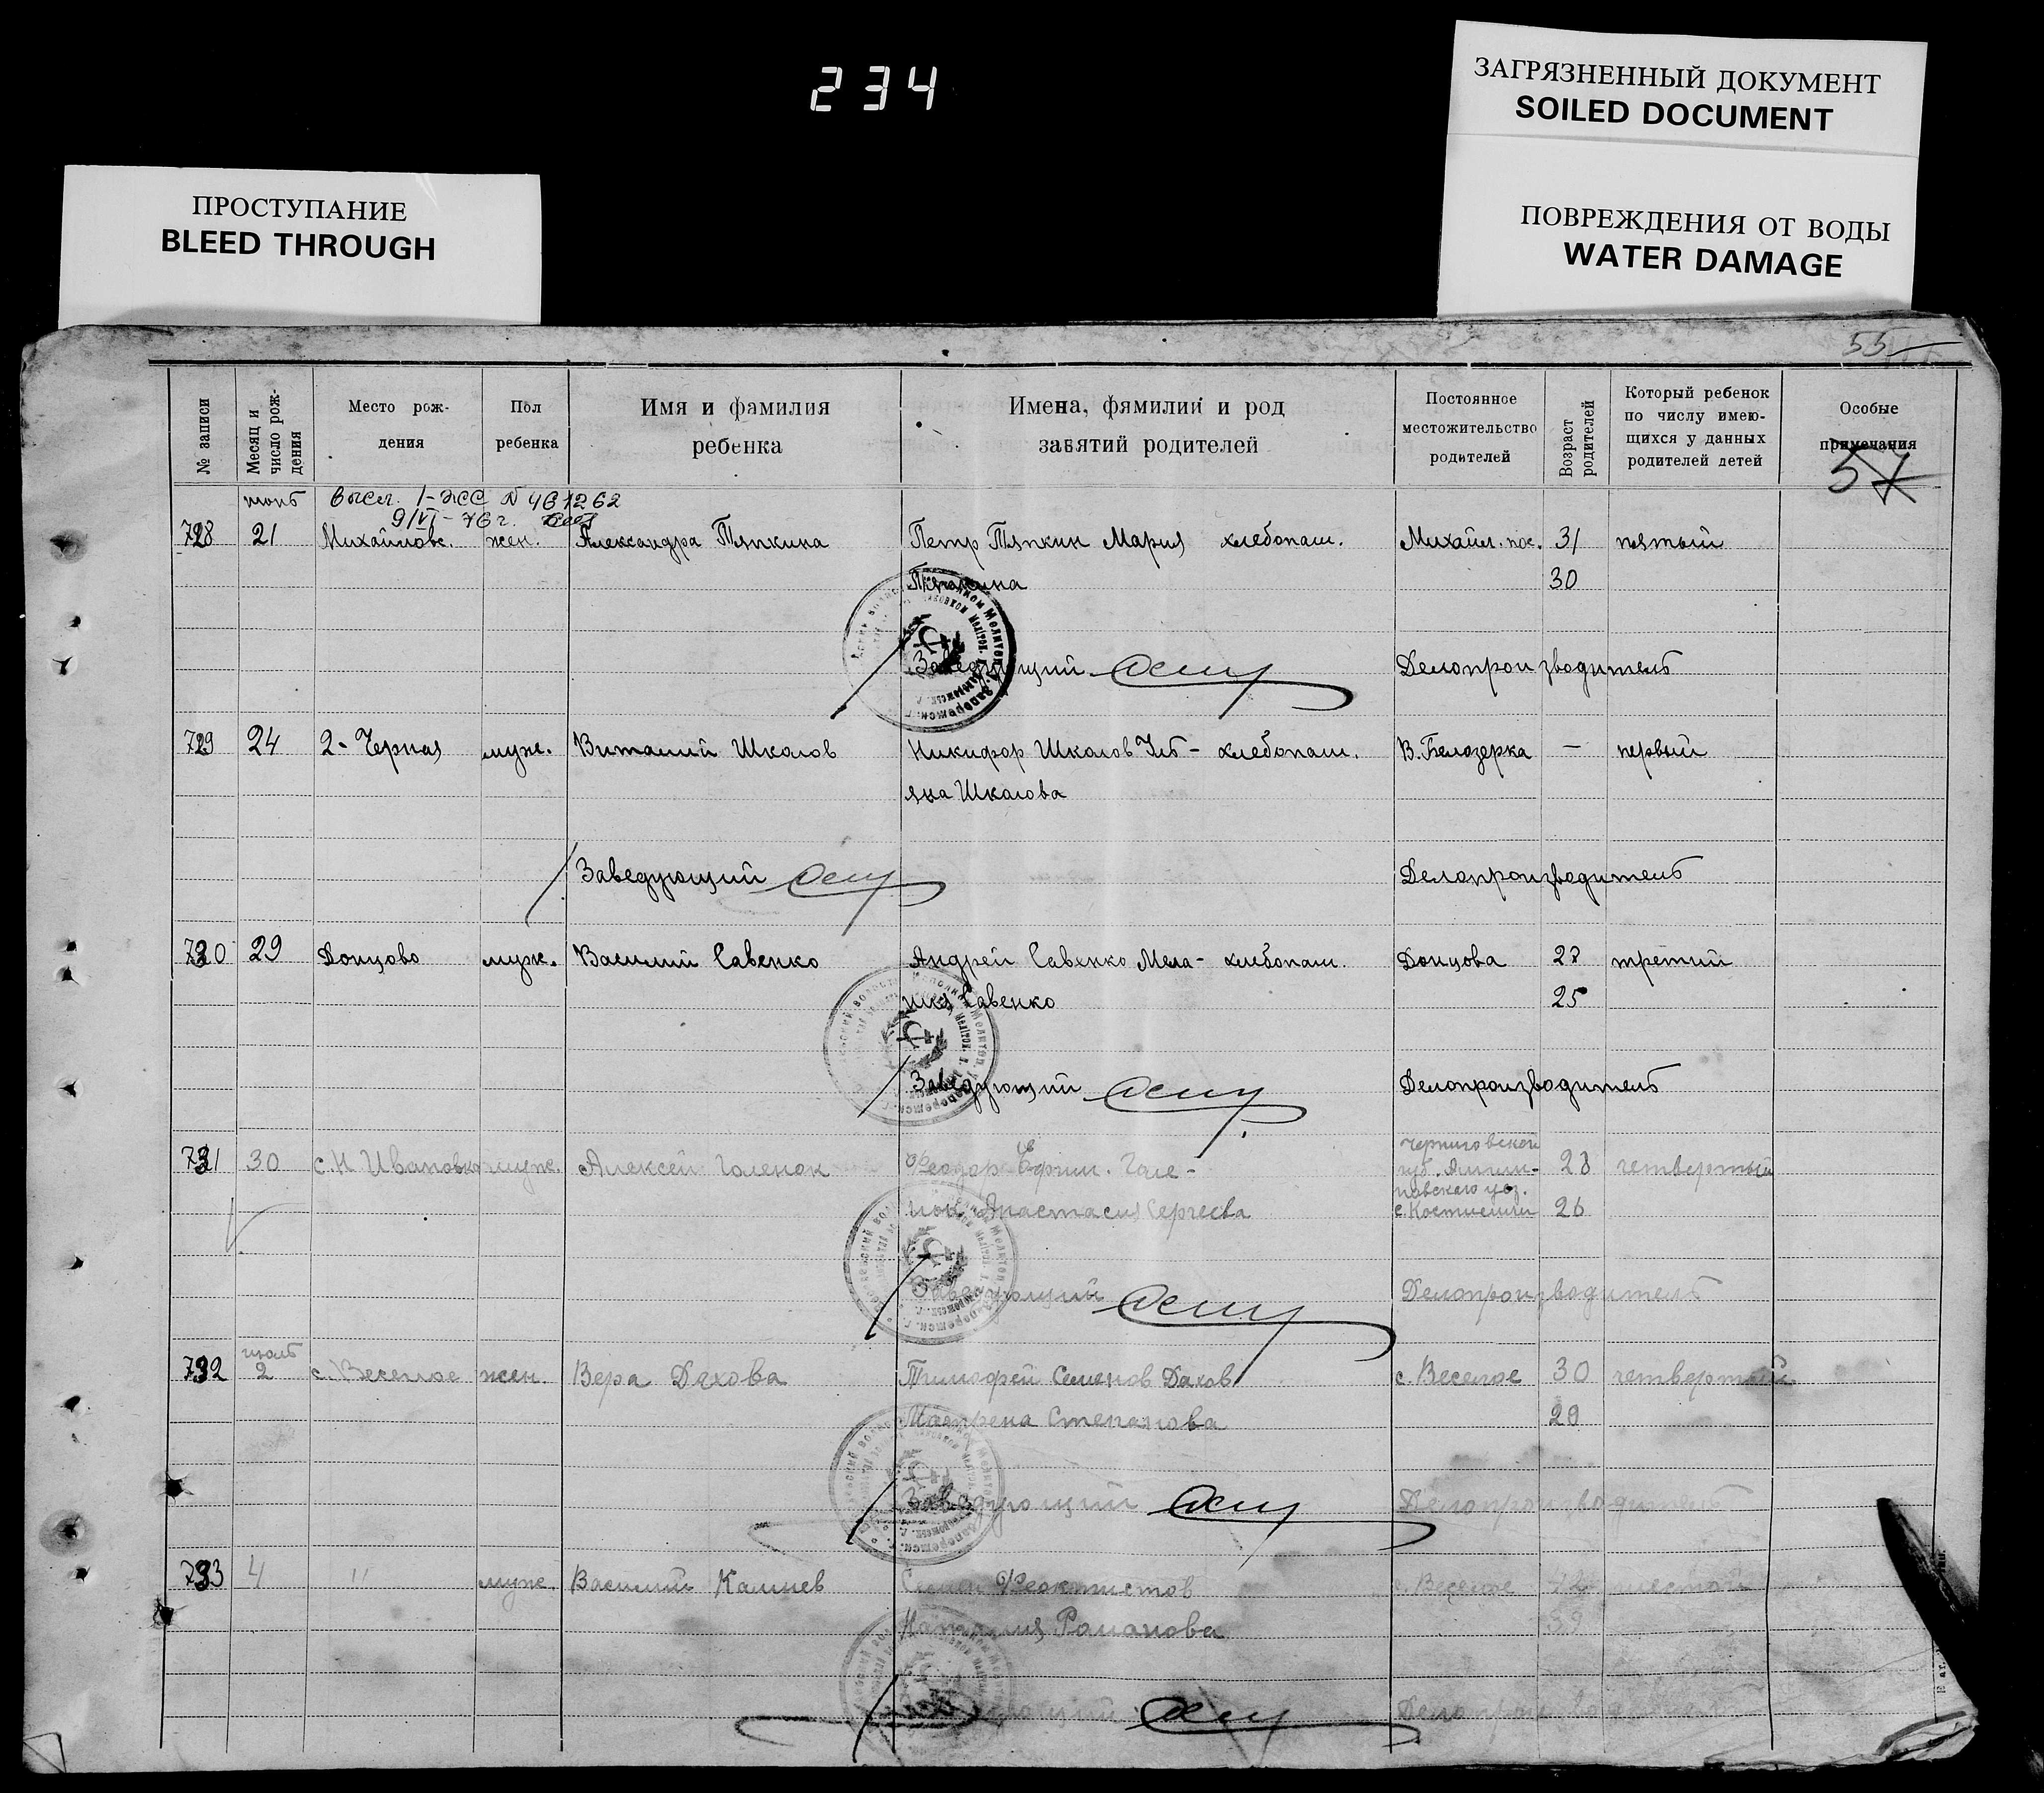 234
ЗАГРЯЗНЕННЫЙ ДОКУМЕНТ
SOILED DOCUMENT
ПОВРЕЖДЕНИЯ ОТ ВОДЫ
WATER DAMAGE
ПРОСТУПАНИЕ
BLEED THROUGH
55
№ записи
Месяц и число рож-дения
Место рож-дения
Пол ребенка
Имя и фамилия ребенка
Имена, фямилии и род занятий родителей
Постоянное местожительство родителей
Возраст родителей
Который ребенок по числу имею-щихся у данных родителей детей
Особые примечания
57
июнь Высл. I-ЖС № 461262
9/VI-76 г.
728 21 Михайловс. жен. Александра Тяпкина Петр Тяпкин Мария хлебопаш. Михайл. пос. 31 пятый
Тяпкина 30
Заведующий Делопроизводитель
729 24 2-Черная муж. Виталий Шкалов Никифор Шкалов Уль- хлебопаш. В. Белозерка — первый
яна Шкалова
Заведующий Делопроизводитель
730 29 Донцово муж. Василий Савенко Андрей Савенко Мела- хлебопаш. Донцова 27 третий
ния Савенко 25
Заведующий Делопроизводитель
731 30 с. Н Ивановка муж. Алексей Галенок Феодор Ефим. Гале- Черниговской губ. 28 четвертый
нок Анастасия Сергеева уез. с. 26
Заведующий Делопроизводитель
июль
732 2 с. Веселое жен. Вера Дахова Тимофей Семенов Дахов с. Веселое 30 четвертый
Матрена Степанова 29
Заведующий Делопроизводитель
733 4 " муж. Василий Калиев Феоктистов с. Веселое 42 шестой
Наталия Романова 39
Делопроизводитель